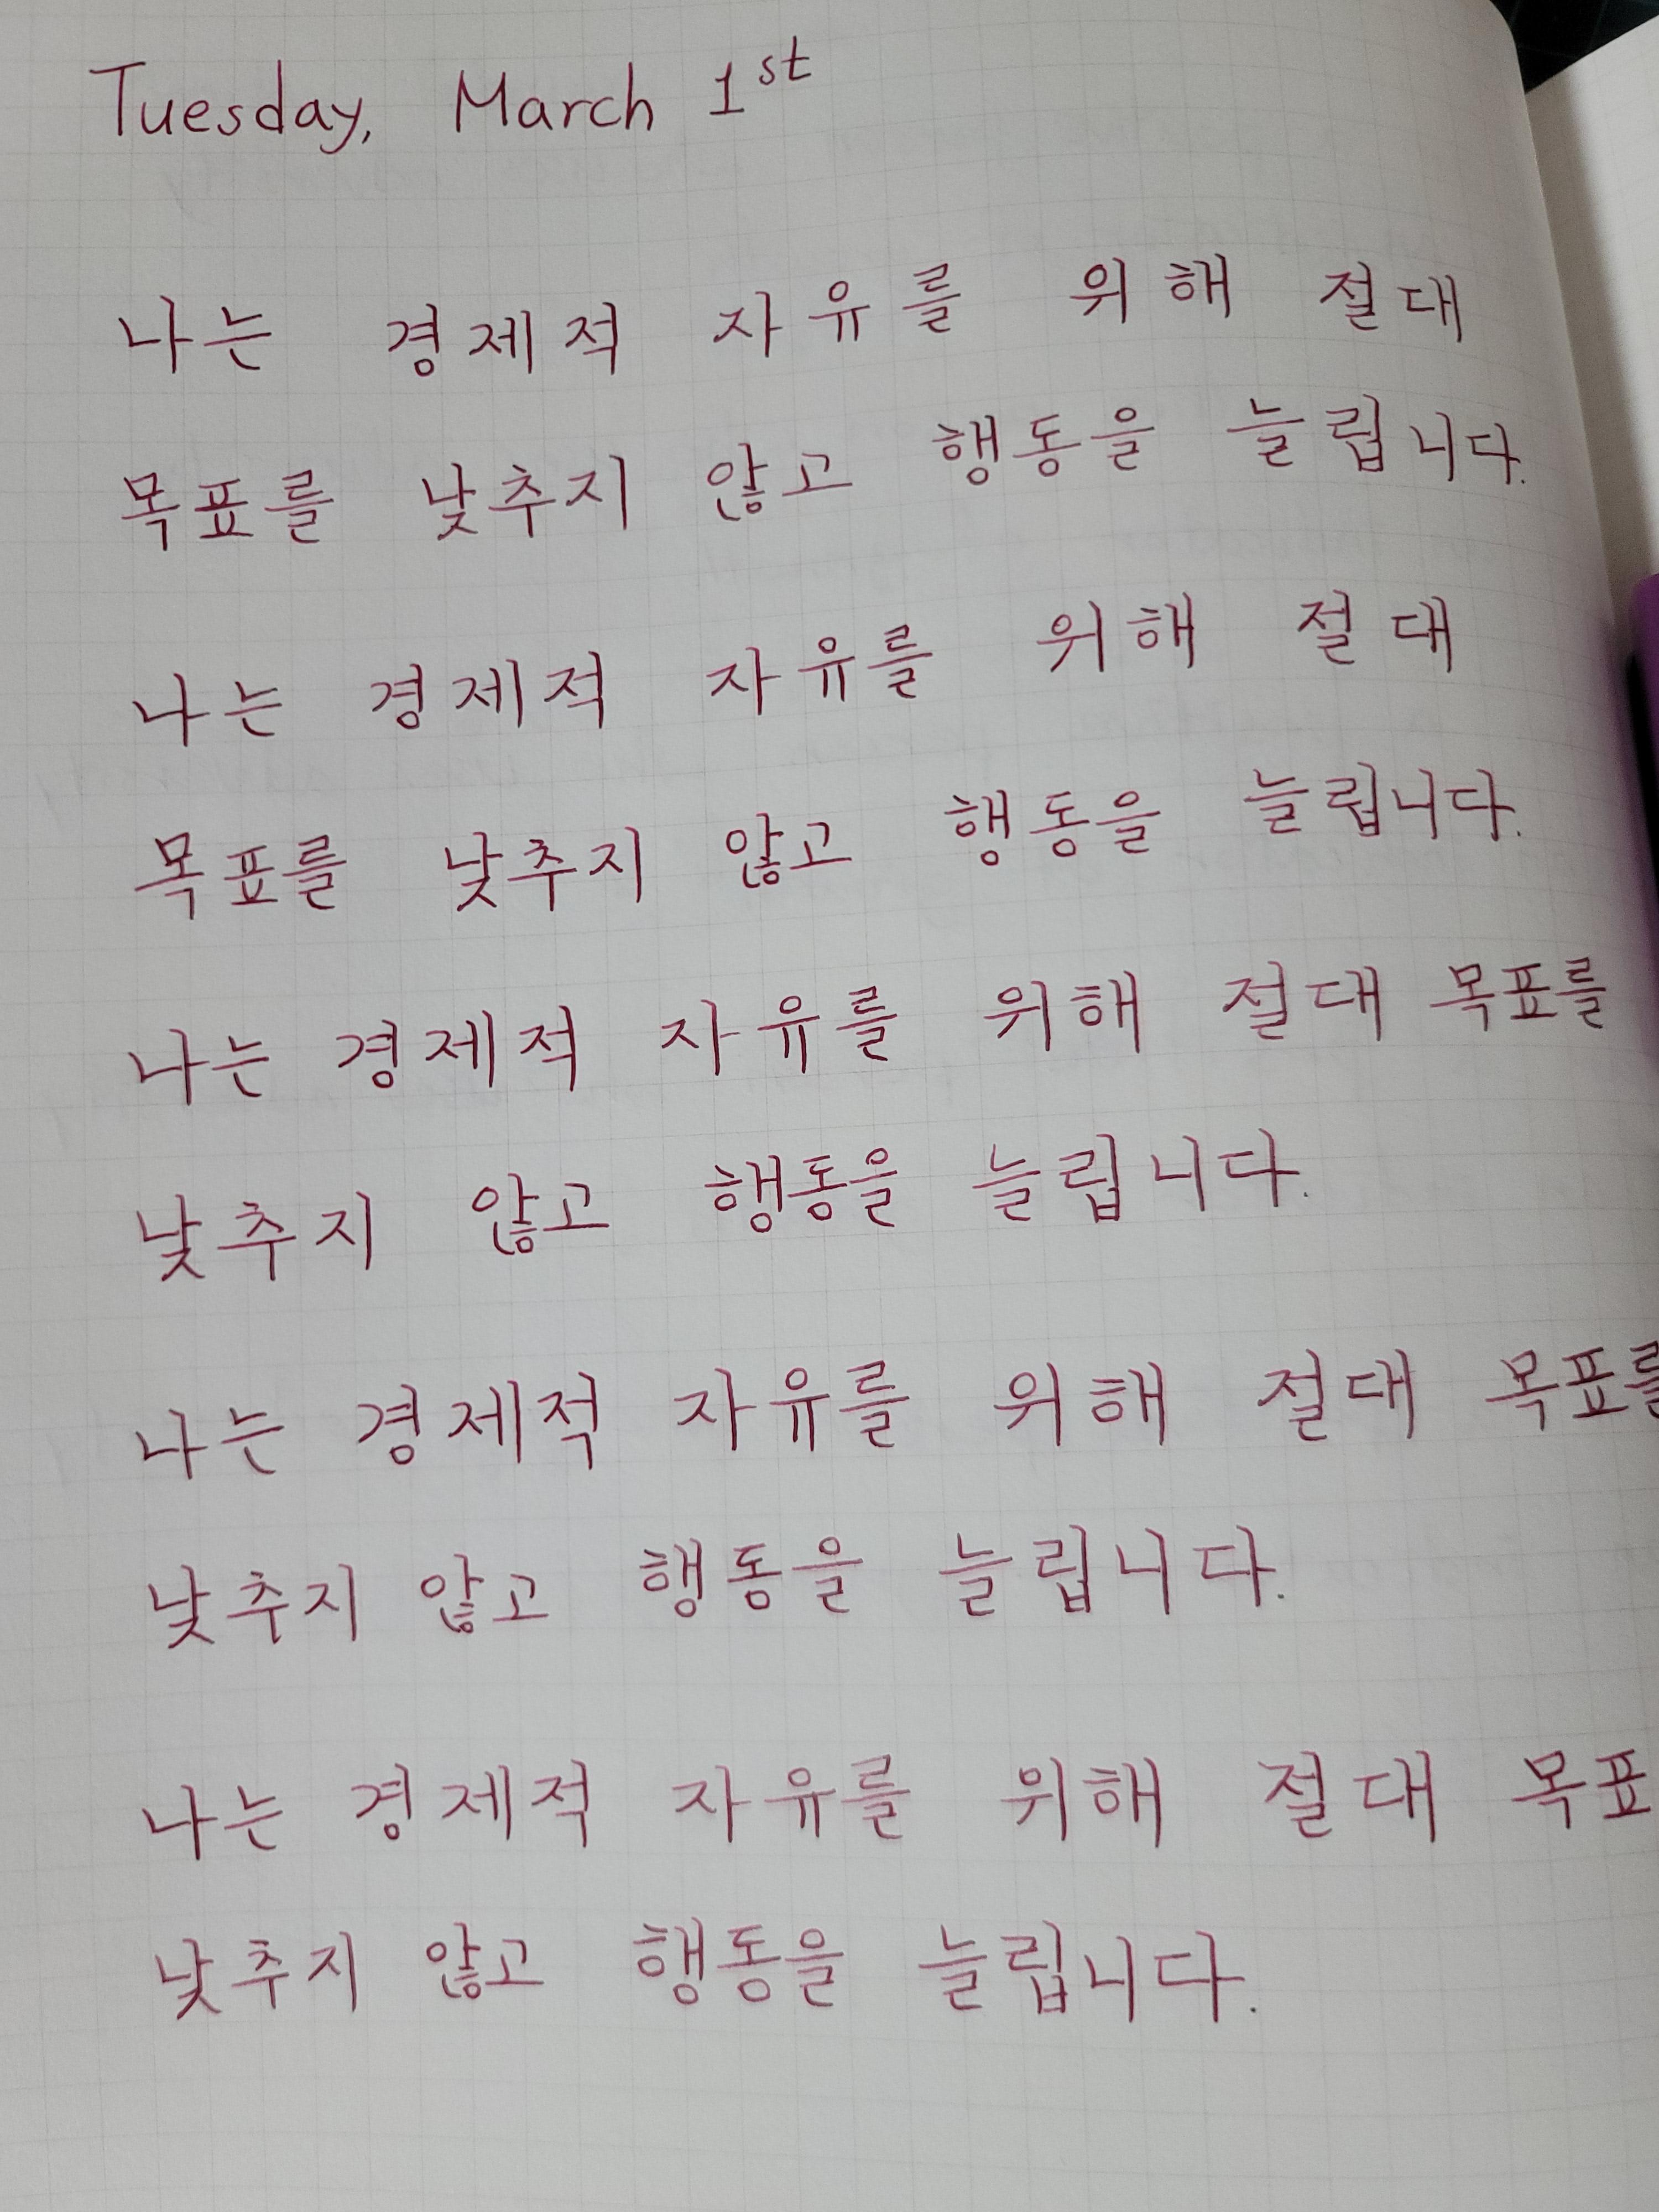 Tuesday, March 1st
나는 경제적 자유를 위해 절대
목표를 낮추지 않고 행동을 늘립니다.
나는 경제적 자유를 위해 절대
목표를 낮추지 않고 행동을 늘립니다.
나는 경제적 자유를 위해 절대 목표를
낮추지 않고 행동을 늘립니다.
나는 경제적 자유를 위해 절대 목표를
낮추지 않고 행동을 늘립니다.
나는 경제적 자유를 위해 절대 목표
낮추지 않고 행동을 늘립니다.